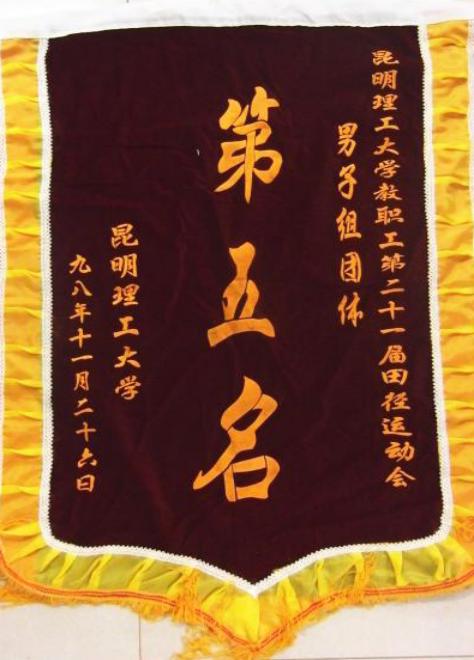 昆明理工大学教职工第二十一届田径运动会
男子组团体
第五名
昆明理工大学
九八年十一月二十六日